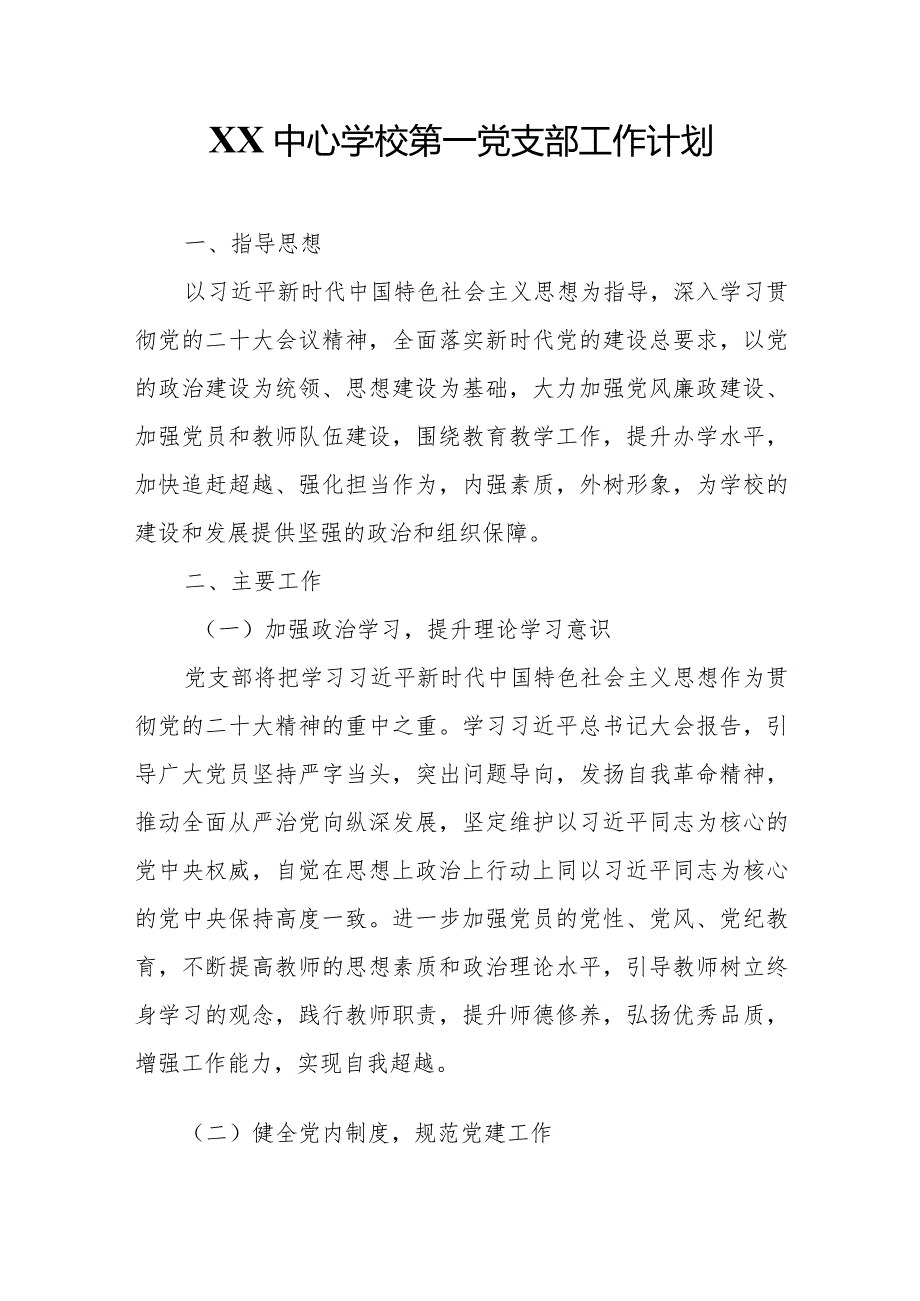 XX 中心学校第一党支部工作计划
一、指导思想
以习近平新时代中国特色社会主义思想为指导，深入学习贯
彻党的二十大会议精神，全面落实新时代党的建设总要求，以党
的政治建设为统领、思想建设为基础，大力加强党风廉政建设、
加强党员和教师队伍建设，围绕教育教学工作，提升办学水平，
加快追赶超越、强化担当作为，内强素质，外树形象，为学校的
建设和发展提供坚强的政治和组织保障。
二、主要工作
（一）加强政治学习，提升理论学习意识
党支部将把学习习近平新时代中国特色社会主义思想作为贯
彻党的二十大精神的重中之重。学习习近平总书记大会报告，引
导广大党员坚持严字当头，突出问题导向，发扬自我革命精神，
推动全面从严治党向纵深发展，坚定维护以习近平同志为核心的
党中央权威，自觉在思想上政治上行动上同以习近平同志为核心
的党中央保持高度一致。进一步加强党员的党性、党风、党纪教
育，不断提高教师的思想素质和政治理论水平，引导教师树立终
身学习的观念，践行教师职责，提升师德修养，弘扬优秀品质，
增强工作能力，实现自我超越。
（二）健全党内制度，规范党建工作